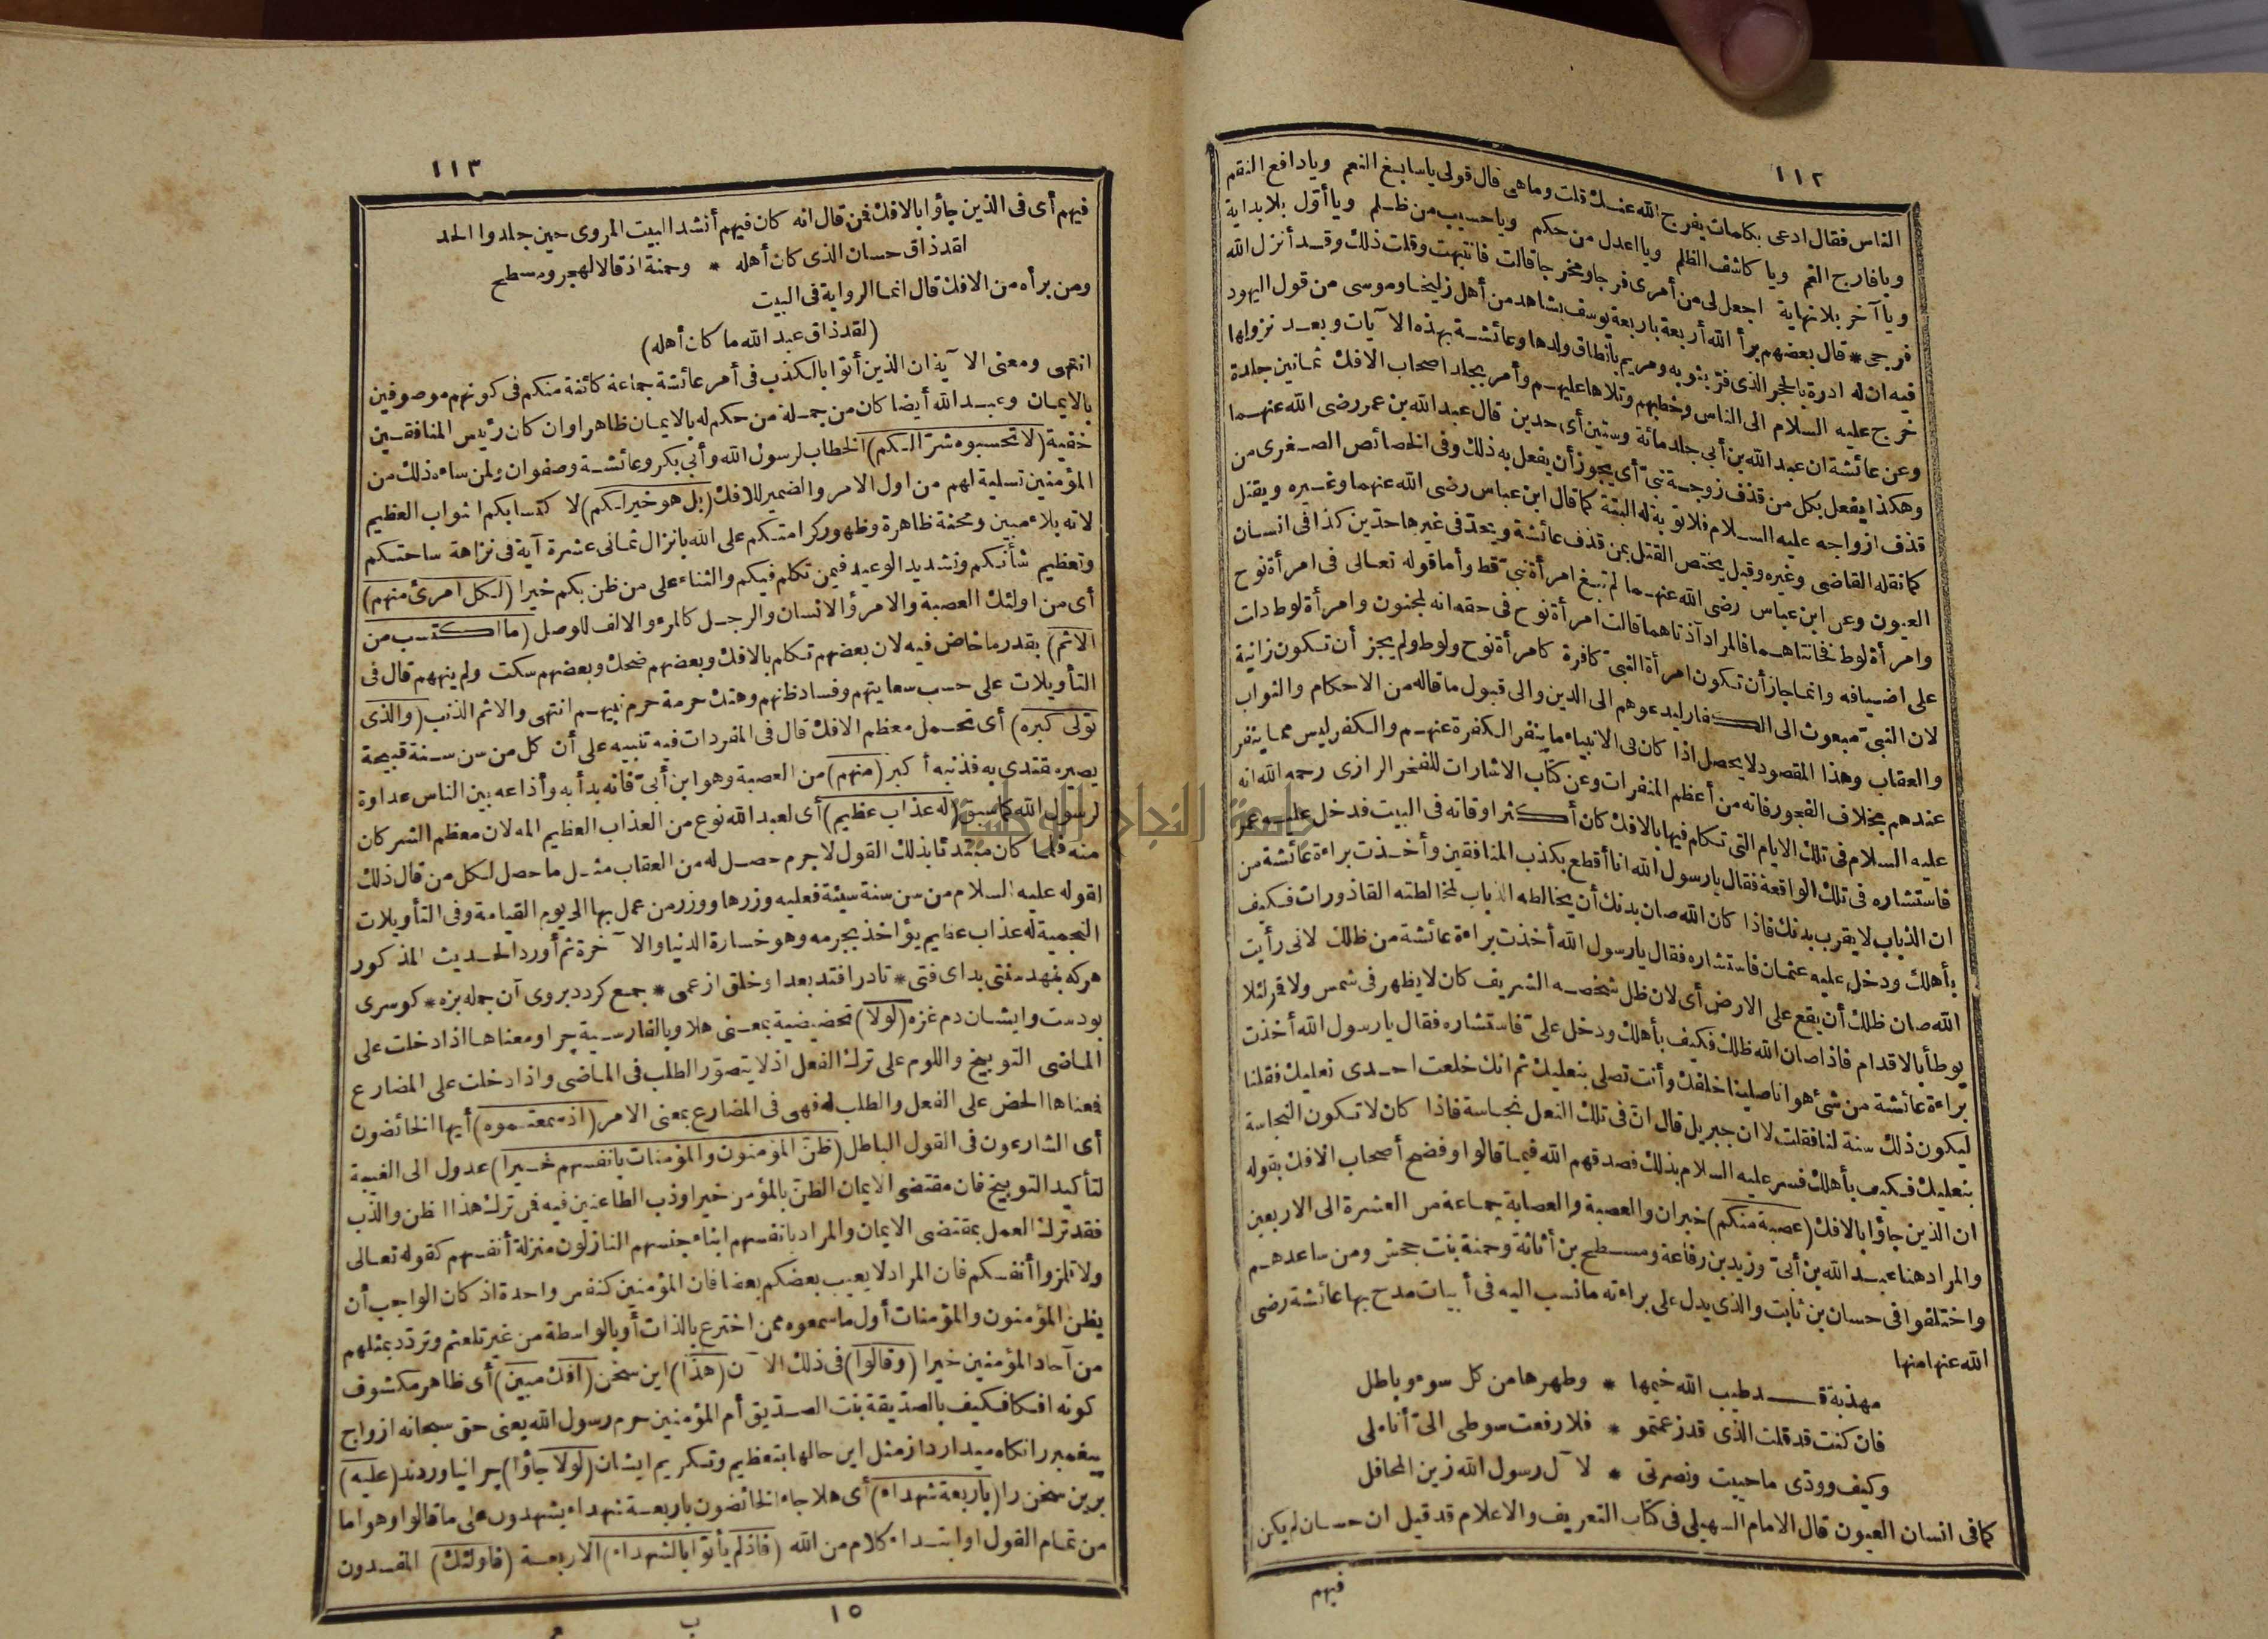 ١١٢
الناس فقال ادعى بكلمات يفرج الله عنك قلت وما هى قال قولى يا سابغ النعم ويا دافع النقم
ويا فارج الغم ويا كاشف الظلم ويا اعدل من حكم ويا حسيب من ظلم ويا أول بلا بداية
ويا آخر بلا نهاية اجعل لى من أمرى فرجا ومخرجا قالت فانتبهت وقلت ذلك وقد أنزل الله
فرجى * قال بعضهم برأ الله أربعة باربعة يوسف بشاهد من أهل زليخا وموسى من قول اليهود
فيه ان له ادرة بالحجر الذى فرّ بثوبه ومريم بانطاق ولدها وعائشة بهذه الآيات وبعد نزولها
خرج عليه السلام الى الناس وخطبهم وتلاها عليهم وأمر بجلد اصحاب الافك ثمانين جلدة
وعن عائشة ان عبد الله بن أبي جلد مائة وستين أى حدين قال عبد الله بن عمر رضى الله عنهما
وهكذا يفعل بكل من قذف زوجة نبىّ أى يجوز أن يفعل به ذلك وفى الخصائص الصغرى من
قذف ازواجه عليه السلام فلا توبة له البتة كما قال ابن عباس رضى الله عنهما وغيره ويقتل
كما نقله القاضى وغيره وقيل يختص القتل بمن قذف عائشة ويحدّ فى غيرها حدّين كذا فى انسان
العيون وعن ابن عباس رضى الله عنهما لم تبغ امرأة نبىّ قط وأما قوله تعالى فى امرأة نوح
وامرأة لوط فخانتاهما فالمراد آذتاهما قالت امرأة نوح فى حقه انه لمجنون وامرأة لوط دلت
على اضيافه وانما جاز أن تكون امرأة النبىّ كافرة كامرأة نوح ولوط ولم يجز أن تكون زانية
لان النبىّ مبعوث الى الكفار ليدعوهم الى الدين والى قبول ما قاله من الاحكام والثواب
والعقاب وهذا المقصود لا يحصل اذا كان فى الانبياء ما ينفر الكفرة عنهم والكفر ليس مما ينفر
عندهم بخلاف الفجور فانه من أعظم المنفرات وعن كتاب الاشارات للفخر الرازى رحمه الله انه
عليه السلام فى تلك الايام التى تكلم فيها بالافك كان أكثر اوقاته فى البيت فدخل عليه عمر
فاستشاره فى تلك الواقعة فقال يا رسول الله انا أقطع بكذب المنافقين وأخذت براءة عائشة من
ان الذباب لا يقرب بدنك فاذا كان الله صان بدنك أن يخالطه الذباب لمخالطته القاذورات فكيف
بأهلك ودخل عليه عثمان فاستشاره فقال يا رسول الله أخذت براءة عائشة من ظلك لانى رأيت
الله صان ظلك أن يقع على الارض أى لان ظل شخصه الشريف كان لا يظهر فى شمس ولا قمر لئلا
يوطأ بالاقدام فاذا صان الله ظلك فكيف بأهلك ودخل علىّ فاستشاره فقال يا رسول الله أخذت
براءة عائشة من شئ هو انا صلينا خلفك وأنت تصلى بنعليك ثم انك خلعت احدى نعليك فقلنا
ليكون ذلك سنة لنا فقلت لا ان جبريل قال انّ فى تلك النعل نجاسة فاذا كان لا تكون النجاسة
بنعليك فكيف بأهلك فسر عليه السلام بذلك فصدقهم الله فيما قالوا وفضح أصحاب الافك بقوله
ان الذين جاؤا بالافك (عصبة منكم) خبر ان والعصبة والعصابة جماعة من العشرة الى الاربعين
والمراد هنا عبد الله بن أبىّ وزيد بن رفاعة ومسطح بن أثاثة وحمنة بنت جحش ومن ساعدهم
واختلفوا فى حسان بن ثابت والذى يدل على براءته ما نسب اليه فى أبيات مدح بها عائشة رضى
الله عنها منها
مهذبة قد طيب الله خيمها * وطهرها من كل سوء وباطل
فان كنت قد قلت الذى قد زعمتمو * فلا رفعت سوطى الىّ أناملى
وكيف وودّى ما حييت ونصرتى * لآل رسول الله زين المحافل
كما فى انسان العيون قال الامام السهيلى فى كتاب التعريف والاعلام قد قيل ان حسان لم يكن
فيهم
١١٣
فيهم أى فى الذين جاؤا بالافك فمن قال انه كان فيهم أنشد البيت المروى حين جلدوا الحد
لقد ذاق حسان الذى كان أهله * وحمنة اذ قالا لهجر ومسطح
ومن برأه من الافك قال انما الرواية فى البيت
(لقد ذاق عبد الله ما كان أهله)
انتهى ومعنى الآية ان الذين أتوا بالكذب فى أمر عائشة جماعة كائنة منكم فى كونهم موصوفين
بالايمان وعبد الله أيضا كان من جملة من حكم له بالايمان ظاهرا وان كان رئيس المنافقين
خفية (لا تحسبوه شرّا لكم) الخطاب لرسول الله وأبي بكر وعائشة وصفوان ولمن ساءه ذلك من
المؤمنين تسلية لهم من اول الامر والضمير للافك (بل هو خير لكم) لاكتسابكم الثواب العظيم
لانه بلاء مبين ومحنة ظاهرة وظهور كرامتكم على الله بانزال ثمانى عشرة آية فى نزاهة ساحتكم
وتعظيم شأنكم وتشديد الوعيد فيمن تكلم فيكم والثناء على من ظن بكم خيرا (لكل امرئ منهم)
أى من اولئك العصبة والامرؤ الانسان والرجل كالمرء والالف للوصل (ما اكتسب من
الاثم) بقدر ما خاض فيه لان بعضهم تكلم بالافك وبعضهم ضحك وبعضهم سكت ولم ينههم قال فى
التأويلات على حسب سعايتهم وفساد ظنهم وهتك حرمة حرم نبيهم انتهى والاثم الذنب (والذى
تولى كبره) أى تحمل معظم الافك قال فى المفردات فيه تنبيه على أن كل من سن سنة قبيحة
يصير مقتدى به فذنبه أكبر (منهم) من العصبة وهو ابن أبىّ فانه بدأ به وأذاعه بين الناس عداوة
لرسول الله كما سبق (له عذاب عظيم) أى لعبد الله نوع من العذاب العظيم المه لان معظم الشر كان
منه فلما كان مبتدئا بذلك القول لا جرم حصل له من العقاب مثل ما حصل لكل من قال ذلك
لقوله عليه السلام من سن سنة سيئة فعليه وزرها ووزر من عمل بها الى يوم القيامة وفى التأويلات
النجمية له عذاب عظيم يؤاخذ بجرمه وهو خسارة الدنيا والآخرة ثم أورد الحديث المذكور
هركه بنهد سنتى بد اى فتى * تا در افتد بعد او خلق از عمى * جمع كردد بر وى آن جمله بزه * كو سرى
بودست وايشان دم غزه (لولا) تحضيضية بمعنى هلا وبالفارسية چرا ومعناها اذا دخلت على
الماضى التوبيخ واللوم على ترك الفعل اذ لا يتصوّر الطلب فى الماضى واذا دخلت على المضارع
فمعناها الحض على الفعل والطلب له فهى فى المضارع بمعنى الامر (اذ سمعتموه) أيها الخائضون
أى الشارعون فى القول الباطل (ظنّ المؤمنون والمؤمنات بانفسهم خيرا) عدول الى الغيبة
لتأكيد التوبيخ فان مقتضى الايمان الظنّ بالمؤمن خيرا وذب الطاعنين فيه فمن ترك هذا الظن والذب
فقد ترك العمل بمقتضى الايمان والمراد بانفسهم ابناء جنسهم النازلون منزلة أنفسهم كقوله تعالى
ولا تلمزوا أنفسكم فان المراد لا يعيب بعضكم بعضا فان المؤمنين كنفس واحدة اذ كان الواجب أن
يظن المؤمنون والمؤمنات أول ما سمعوه ممن اخترع بالذات أو بالواسطة من غير تلعثم وتردّد بمثلهم
من آحاد المؤمنين خيرا (وقالوا) فى ذلك الآن (هذا) اين سخن (افك مبين) أى ظاهر مكشوف
كونه افكا فكيف بالصدّيقة بنت الصدّيق أم المؤمنين حرم رسول الله يعنى حق سبحانه ازواج
پيغمبر را نكاه ميدارد از مثل اين حالها بتعظيم وتكريم ايشان (لولا جاؤا) چرا نياوردند (عليه)
برين سخن را (باربعة شهداء) أى هلا جاء الخائضون باربعة شهداء يشهدون على ما قالوا وهو اما
من تمام القول او ابتداء كلام من الله (فاذ لم يأتوا بالشهداء) الاربعة (فاولئك) المفسدون
١٥ ب
جامعة النجاح الوطنية